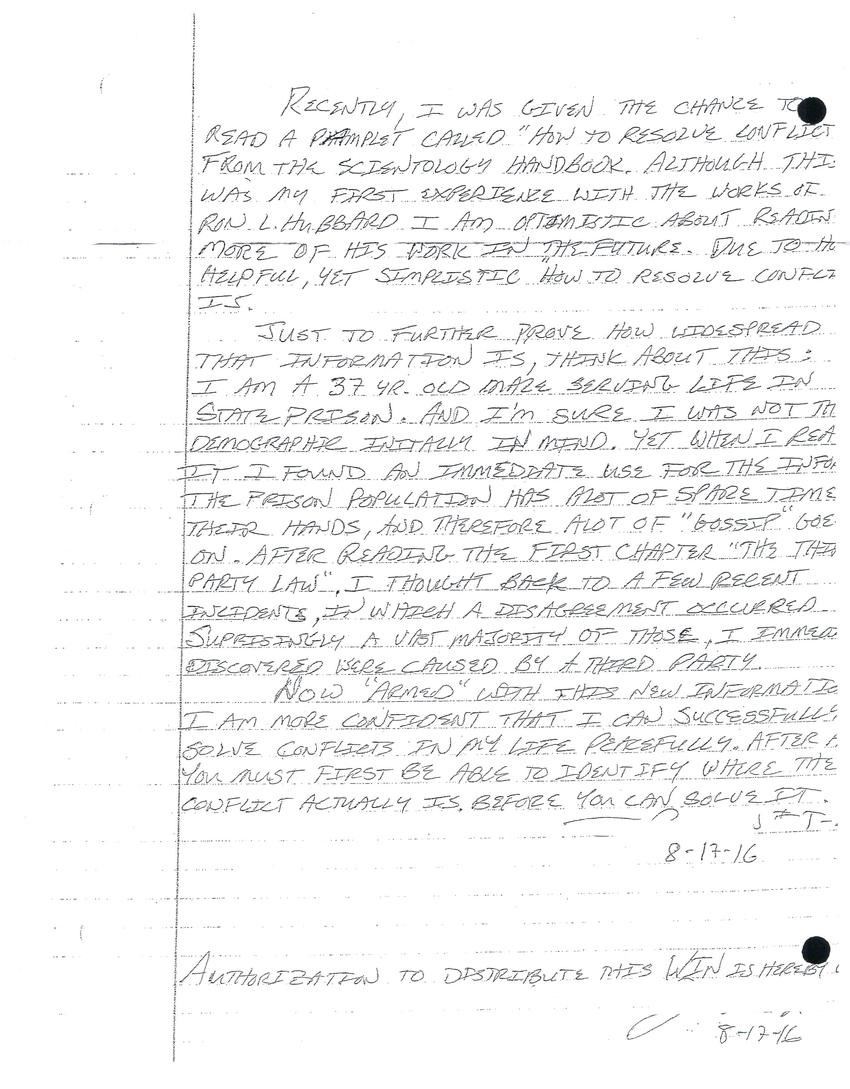 RECENTLY, I WAS GIVEN THE CHANCE TO
READ A PHAMPLET CALLED "HOW TO RESOLVE CONFLICT
FROM THE SCIENTOLOGY HANDBOOK. ALTHOUGH THIS
WAS MY FIRST EXPERIENCE WITH THE WORKS OF
RON L. HUBBARD I AM OPTIMISTIC ABOUT READIN
MORE OF HIS WORK IN THE FUTURE. DUE TO H
HELPFUL, YET SIMPLISTIC "HOW TO RESOLVE CONFLI
IS.
JUST TO FURTHER PROVE HOW WIDESPREAD
THAT INFORMATION IS, THINK ABOUT THIS:
I AM A 37 YR. OLD MALE SERVING LIFE IN
STATE PRISON. AND I'M SURE I WAS NOT TH
DEMOGRAPHIC INITALLY IN MIND. YET WHEN I REA
IT I FOUND AN IMMEDIATE USE FOR THE INFO
THE PRISON POPULATION HAS ALOT OF SPARE TIME
THEIR HANDS, AND THEREFORE ALOT OF "GOSSIP" GOE
ON. AFTER READING THE FIRST CHAPTER "THE THI
PARTY LAW", I THOUGHT BACK TO A FEW RECENT
INCIDENTS, IN WHICH A DISAGREEMENT OCCURRED.
SUPRISINGLY A VAST MAJORITY OF THOSE, I IMMED
DISCOVERED WERE CAUSED BY A THIRD PARTY.
NOW "ARMED" WITH THIS NEW INFORMATIO
I AM MORE CONFIDENT THAT I CAN SUCCESSFULLY
SOLVE CONFLICTS IN MY LIFE PEACEFULLY. AFTER A
YOU MUST FIRST BE ABLE TO IDENTIFY WHERE THE
CONFLICT ACTUALLY IS, BEFORE YOU CAN SOLVE IT.
8-17-16
AUTHORIZATION TO DISTRIBUTE THIS WIN IS HEREBY
8-17-16